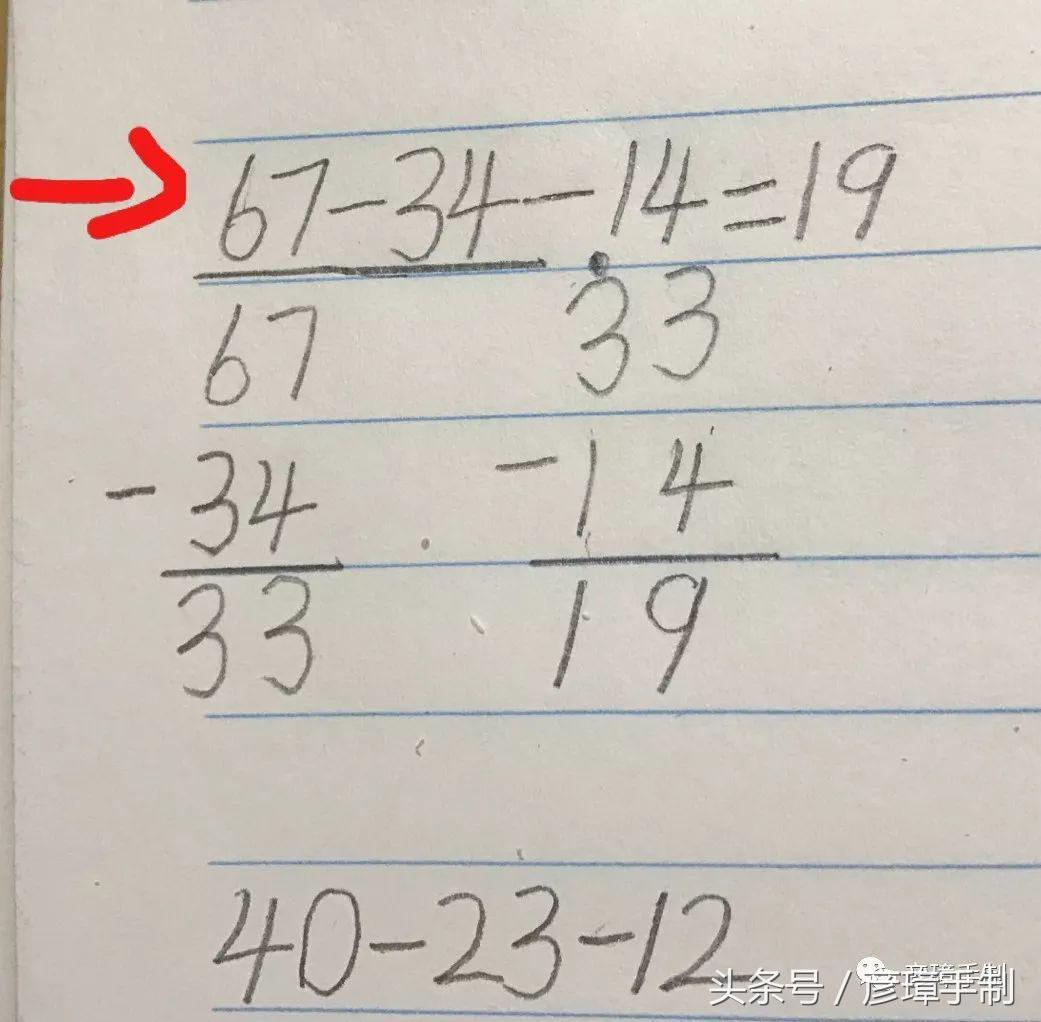 67-34-14=19
67 33
-34 -14
33 19
40-23-12
头条号 / 彦璋手制